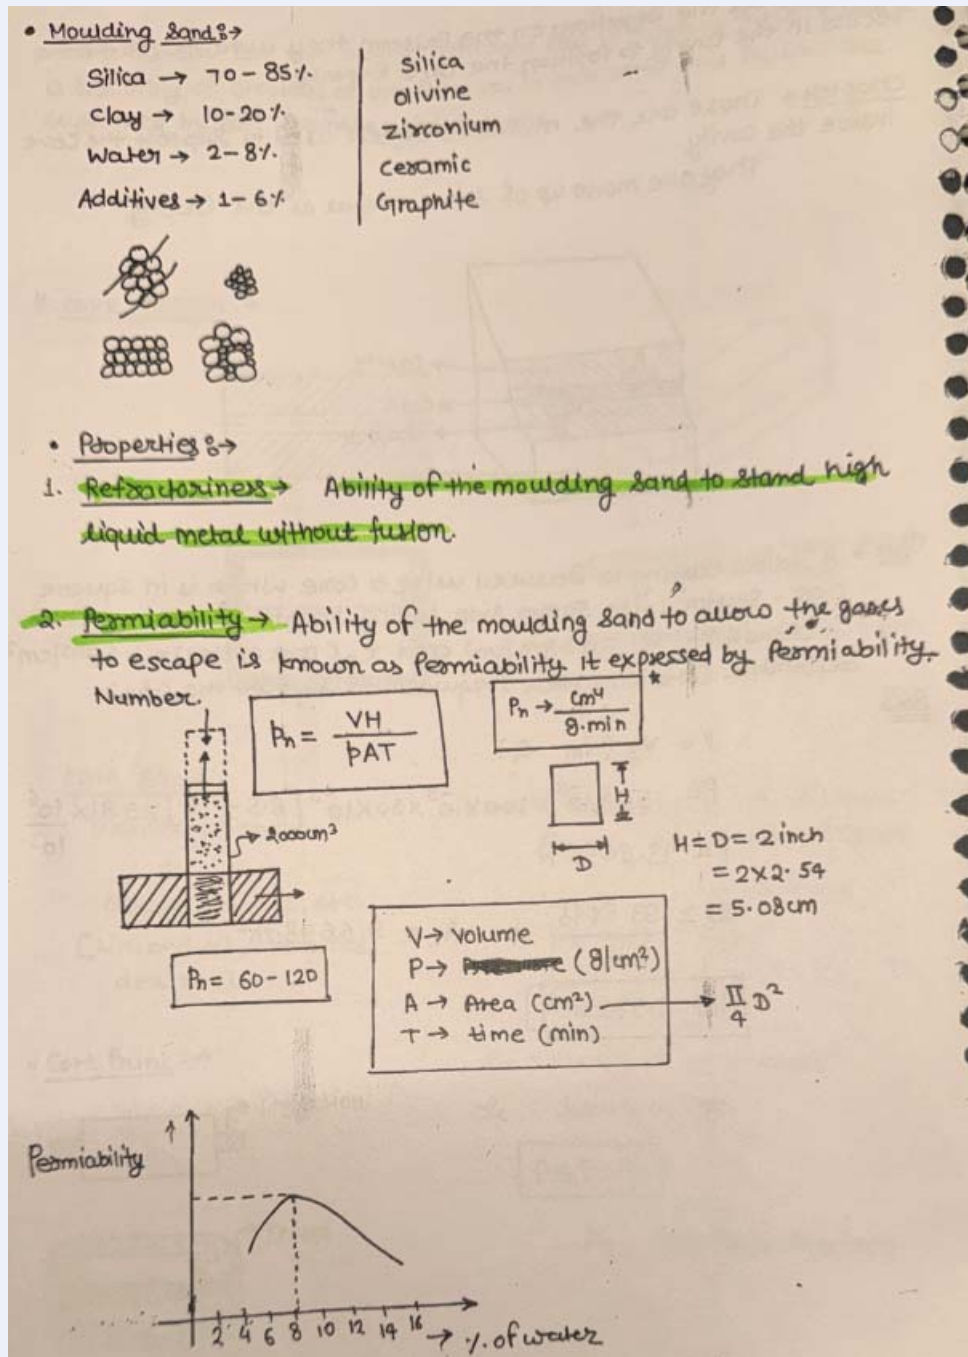 • Moulding Sand :→
Silica → 70-85%
Clay → 10-20%
Water → 2-8%
Additives → 1-6%
Silica
Olivine
Zirconium
Ceramic
Graphite
• Properties :→
1. Refractoriness → Ability of the moulding sand to stand high
liquid metal without fusion.
2. Permiability → Ability of the moulding sand to allow the gases
to escape is known as Permiability it expressed by Permiability
Number.
Pn = VH / PAT
Pn → cm⁴ / g.min
2000cm³
H
D
H = D = 2 inch
= 2×2.54
= 5.08cm
Pn = 60-120
V → Volume
P → (g/cm²)
A → Area (cm²) → π/4 D²
T → time (min)
Permiability
2 4 6 8 10 12 14 16
→ % of water